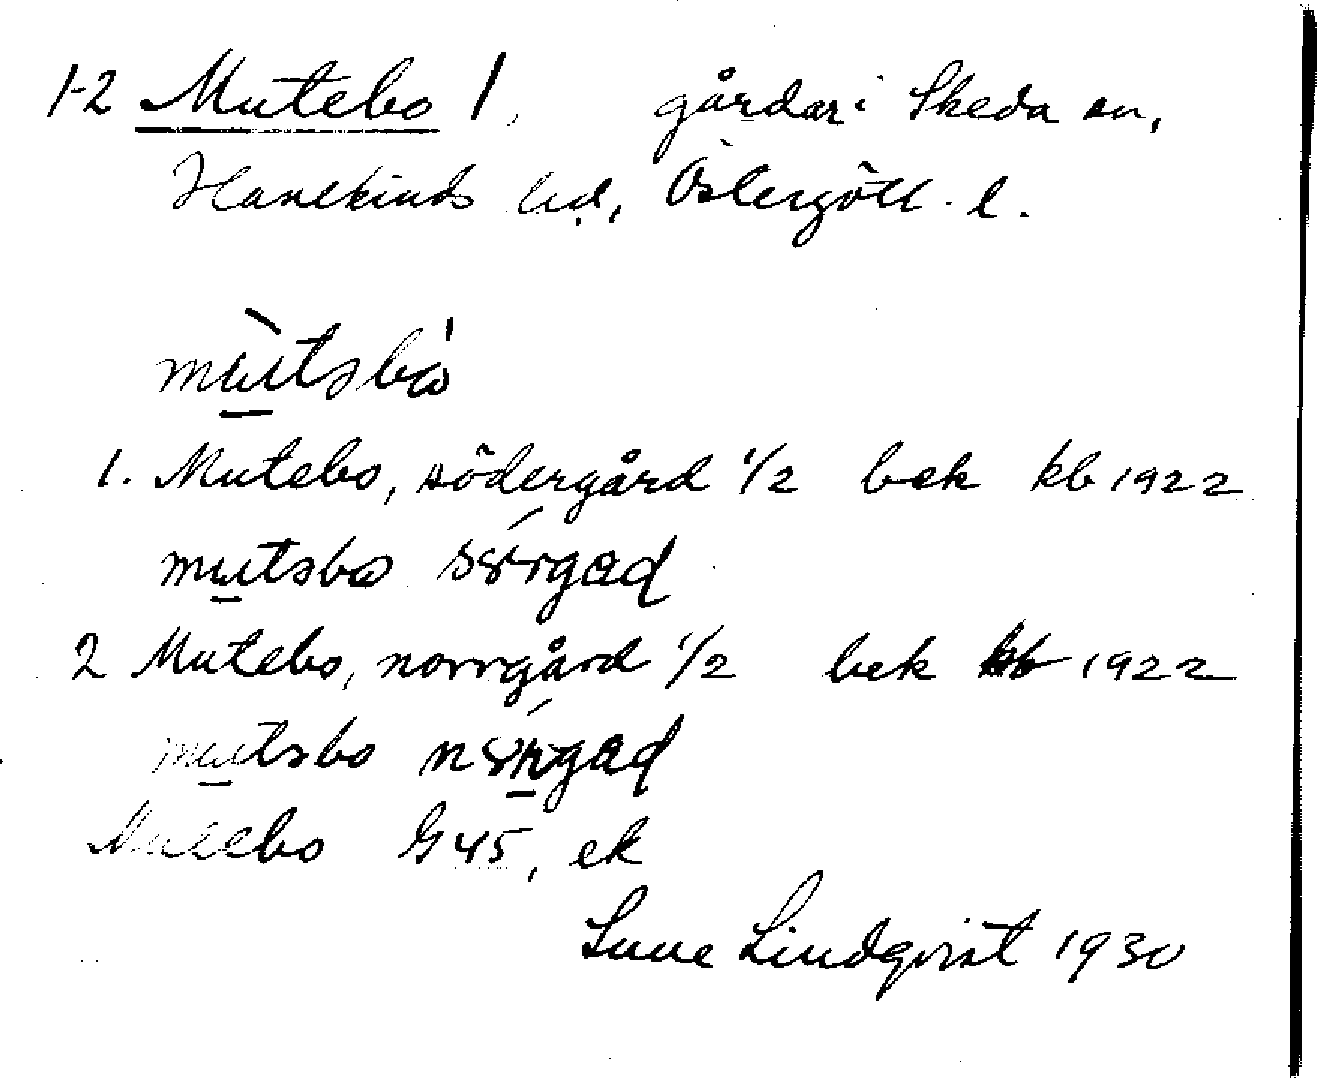 1-2 Mutebo 1, gårdar i Skeda sn,
Hanekinds hd, Östergötl. l.
mùtsbó
1. Mutebo, södergård 1/2 bek kb 1922
mutsbo sörgad
2 Mutebo, norrgård 1/2 bek kb 1922
mutsbo nörgad
Mutebo G 45, ek
Sune Lindqvist 1930